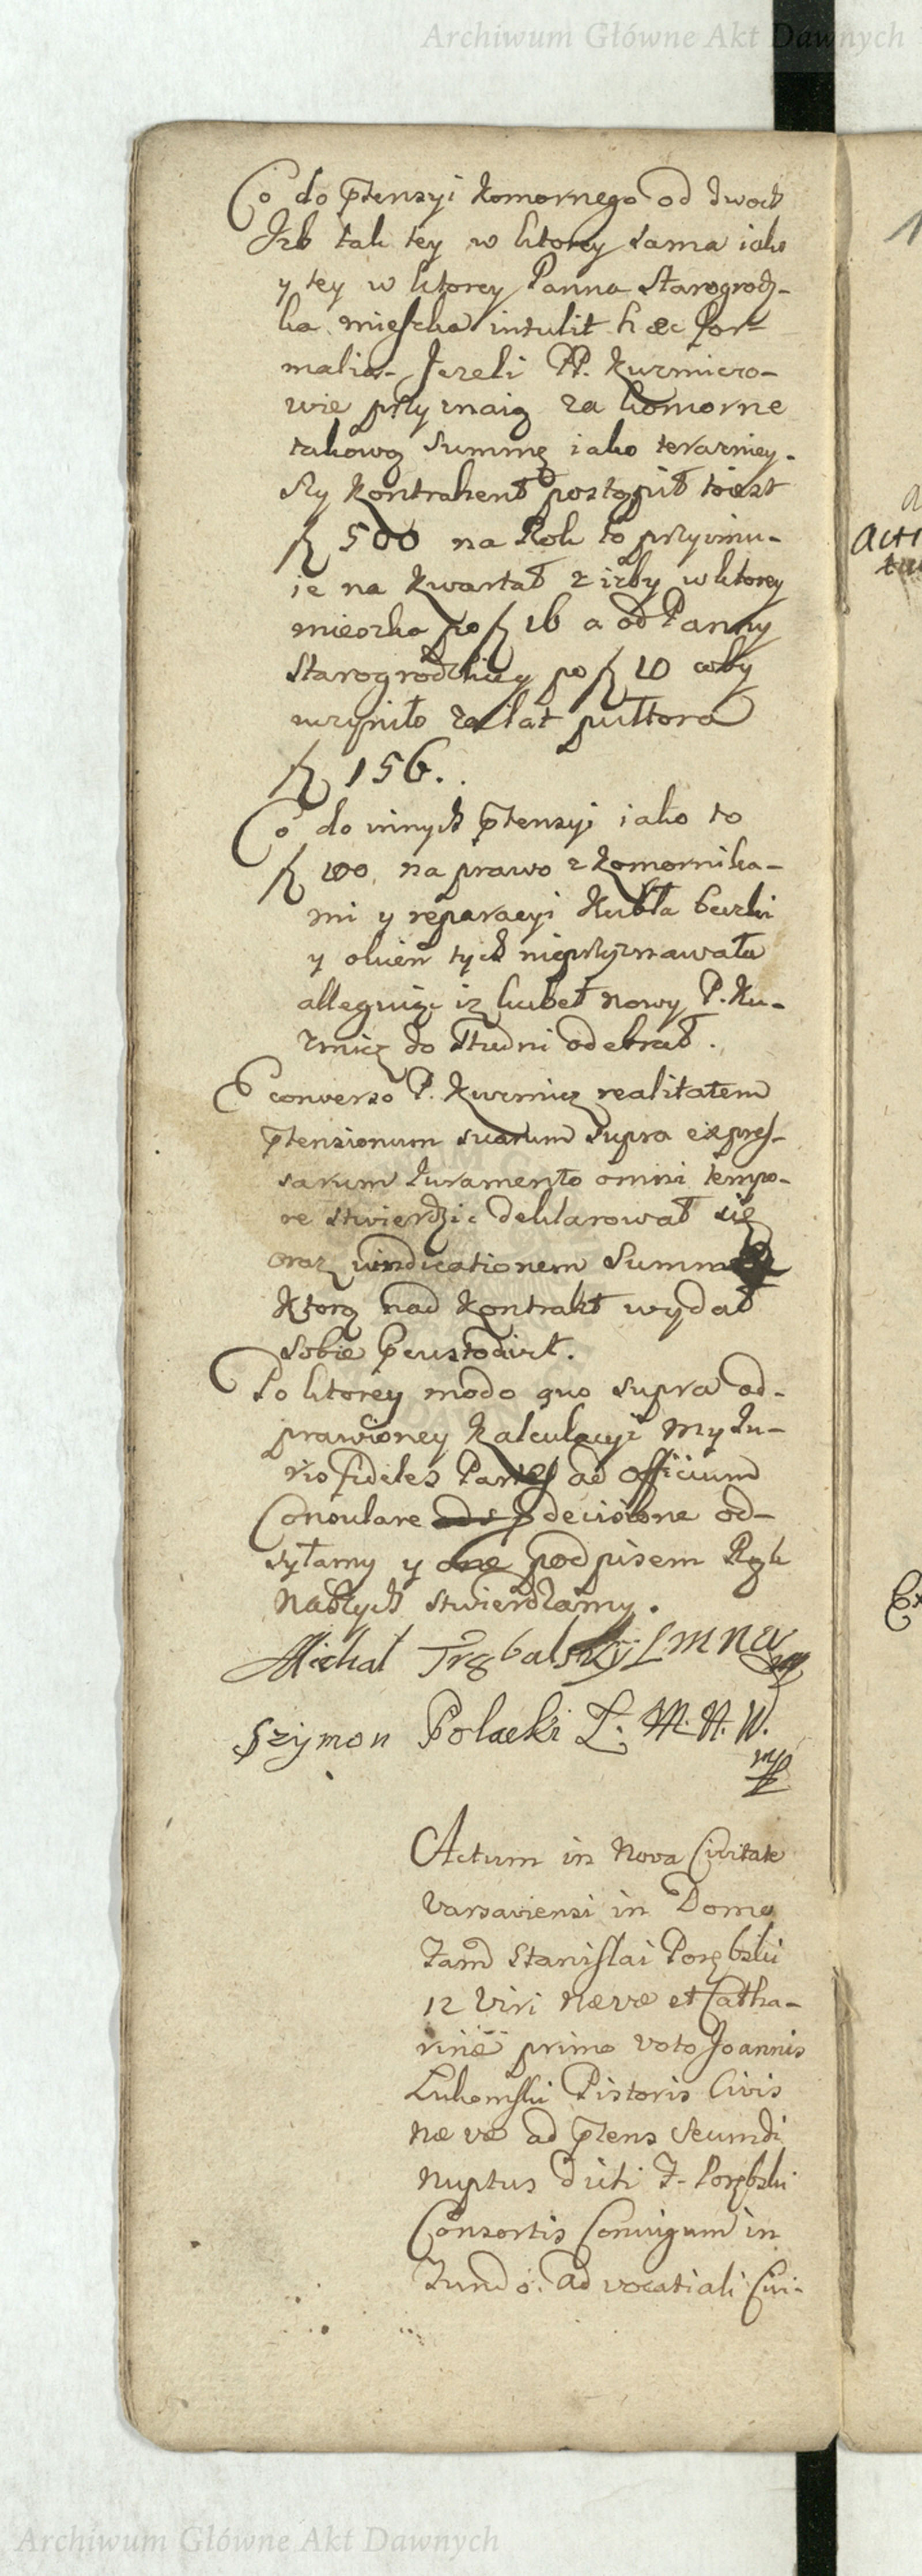 Archiwum Główne Akt Dawnych
Co do ptensyi komornego od dwoch
Izb tak tey w ktorey sama iako
y tey w ktorey Panna Starogrodz-
ka mieszka intulit hæc for-
malia. Jezeli PP. Kuzmicro-
wie przyznaią za komorne
takową Summę iako terazniey-
szy kontrahent postąpił toiest
f 500 na Rok to przyimu-
ie na kwartał z izby w ktorey
mieszka po f 16 a od Panny
Starogrodzkiey po f 10 coby
uczyniło za lat pułtora
f 156.
Co do innych ptensyi iako to
f 100 na prawo z komornika-
mi y reparacyi Kubła
y okien tych nieprzyznawała
alleguiąc iz kubeł nowy P. Ku-
zmicz do Studni odebrał.
E converso P. Kuzmicz realitatem
ptensionum suarum supra expres-
sarum Iuramento omni tempo-
re stwierdzic deklarował się
oraz vindicationem Summ
Ktorą nad kontrakt wydał
sobie
Po ktorey modo quo supra od-
prawioney Kalkulacyi my Iu-
rio fideles Partes ad Officium
Consulare p decisione od-
syłamy y onę podpisem Rąk
Naszych stwierdzamy.
Michał Trębalski L m N W mp
Szymon Polacki L. M. N. W.
mp
Actum in Nova Civitate
Varsaviensi in Domo
Fam Stanislai Porębski
12 Viri Næræ et Catha-
rinæ primo voto Joannis
Lukomski Pistoris Civis
Næ væ ad ptens Secundi
Nuptus dicti F. Porębski
Consortis Coniugum in
Fundo. Advocatiali Civi-
Archiwum Główne Akt Dawnych